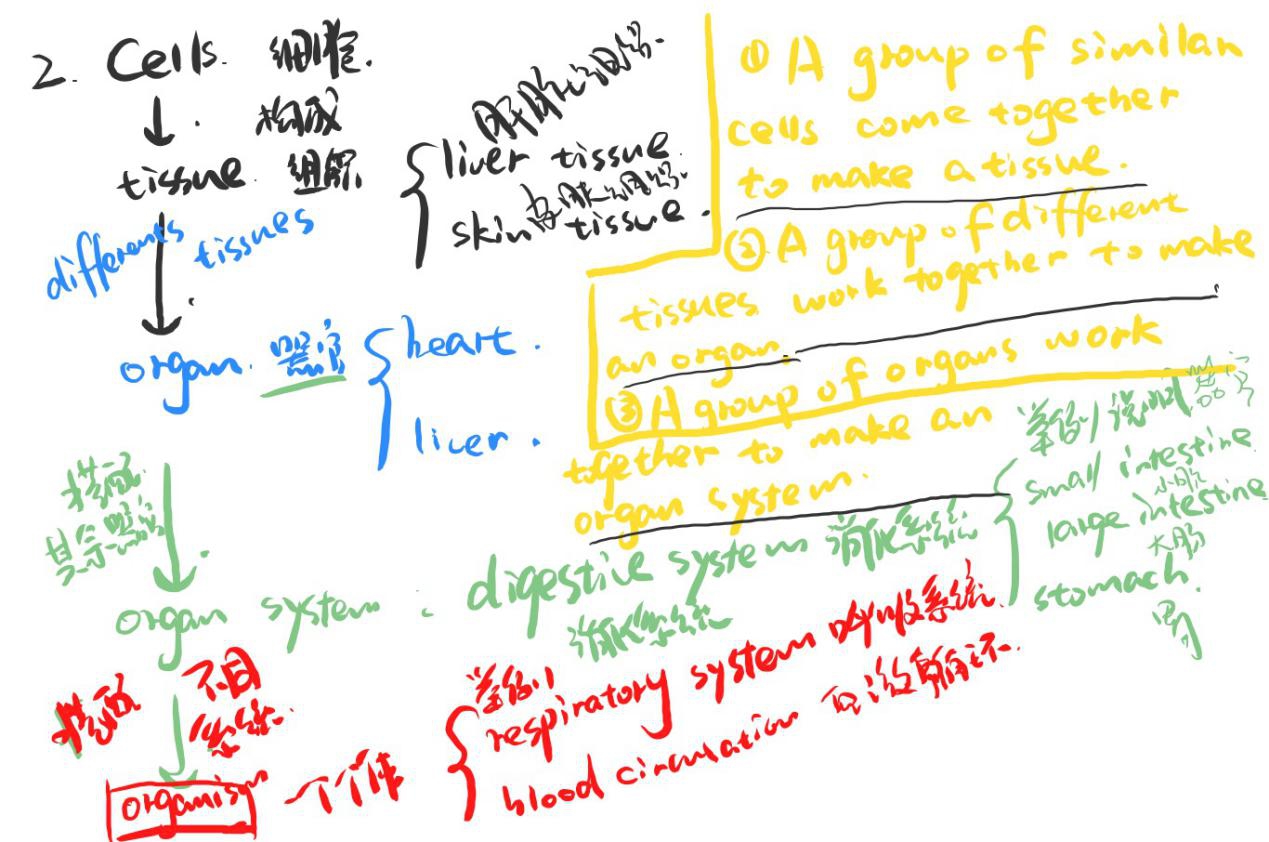 2. Cells. 细胞.
构成
tissue 组织
肝脏组织.
liver tissue
皮肤组织.
skin tissue.
different tissues
organ. 器官
heart.
liver.
① A group of similar
cells come together
to make a tissue.
② A group of different
tissues work together to make
an organ.
③ A group of organs work
together to make an
organ system.
器官
举例说明
small intestine
小肠
large intestine
大肠
stomach.
胃
organ system: digestive system 消化系统
消化系统
不同
系统.
organism 一个个体
举例
respiratory system 呼吸系统.
blood circulation 血液循环.